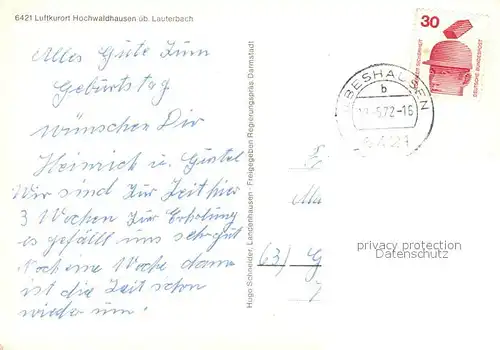 6421 Luftkurort Hochwaldhausen üb. Lauterbach
Alles Gute zum
Geburtstag
wünschen Dir
Heinrich u. Gustel
Wir sind zur Zeit hier
3 Wochen zur Erholung
es gefällt uns sehr gut
Noch eine Woche dann
ist die Zeit schon
wieder um!
Hugo Schneider, Landenhausen - Freigegeben Regierungspräs. Darmstadt
30
DEUTSCHE BUNDESPOST
b
.5.72-16
6421
63)
privacy protection
Datenschutz